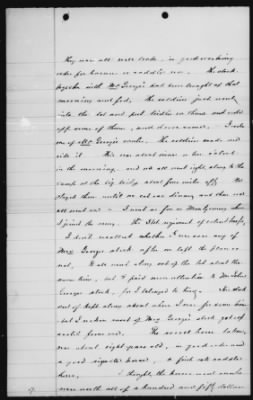 They were all well broke, in good working
order for harness or saddle use. The stock
together with Mr George's had been brought up that
morning and fed. The soldiers just went
into the lot and put bridles on them and rode
off some of them, and drove some. I rode
one of Mr George's mules. The soldiers made me
ride it. This was about nine o'clock
in the morning, and we all went right along to the
camp at the big bridge about four miles off. We
stayed there until we eat our dinner and then we
all went on. I went as far as Montgomery where
I joined the army. The 32d regiment of colored
I don't recollect whether I ever saw any of
Mrs George's stock after we left the place or
not. It all went along out of the lot about the
same time, but I paid more attention to Mr
George's stock, for I belonged to him. His stock
out of sight along about where I was for some time
but I reckon most of Mrs George's stock got off
ahead from me. The sorrel horse taken,
was about eight years old, in good order and
a good sized horse, a fine saddle
horse, I thought, the horses and mules
were worth all of a hundred and fifty dollars